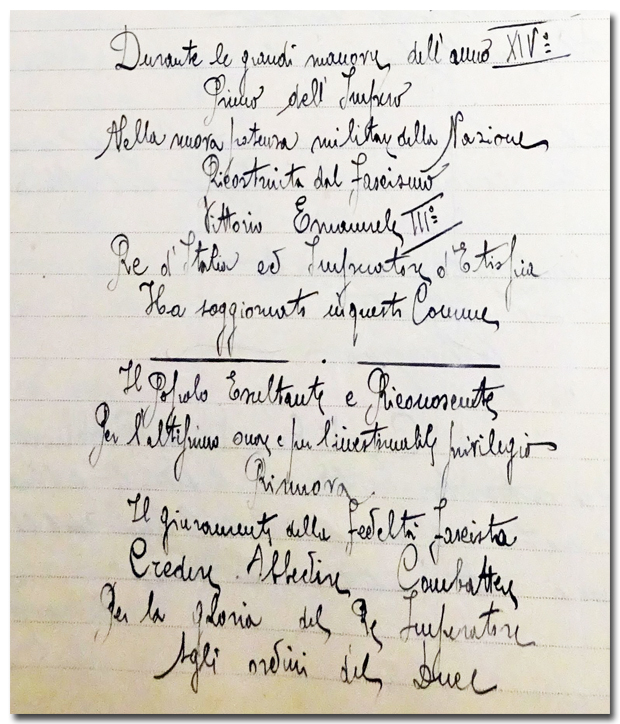 Durante le grandi manovre dell'anno XIVº
Primo dell'Impero
Nella nuova potenza militare della Nazione
Ricostruita dal fascismo
Vittorio Emanuele IIIº
Re d'Italia ed Imperatore d'Etiopia
Ha soggiornato in questo Comune
Il Popolo Esultante e Riconoscente
Per l'altissimo onore e per l'inestimabile privilegio
Rinnova
Il giuramento della Fedeltà Fascista
Credere Abbedire Combattere
Per la gloria del Re Imperatore
Agli ordini del Duce